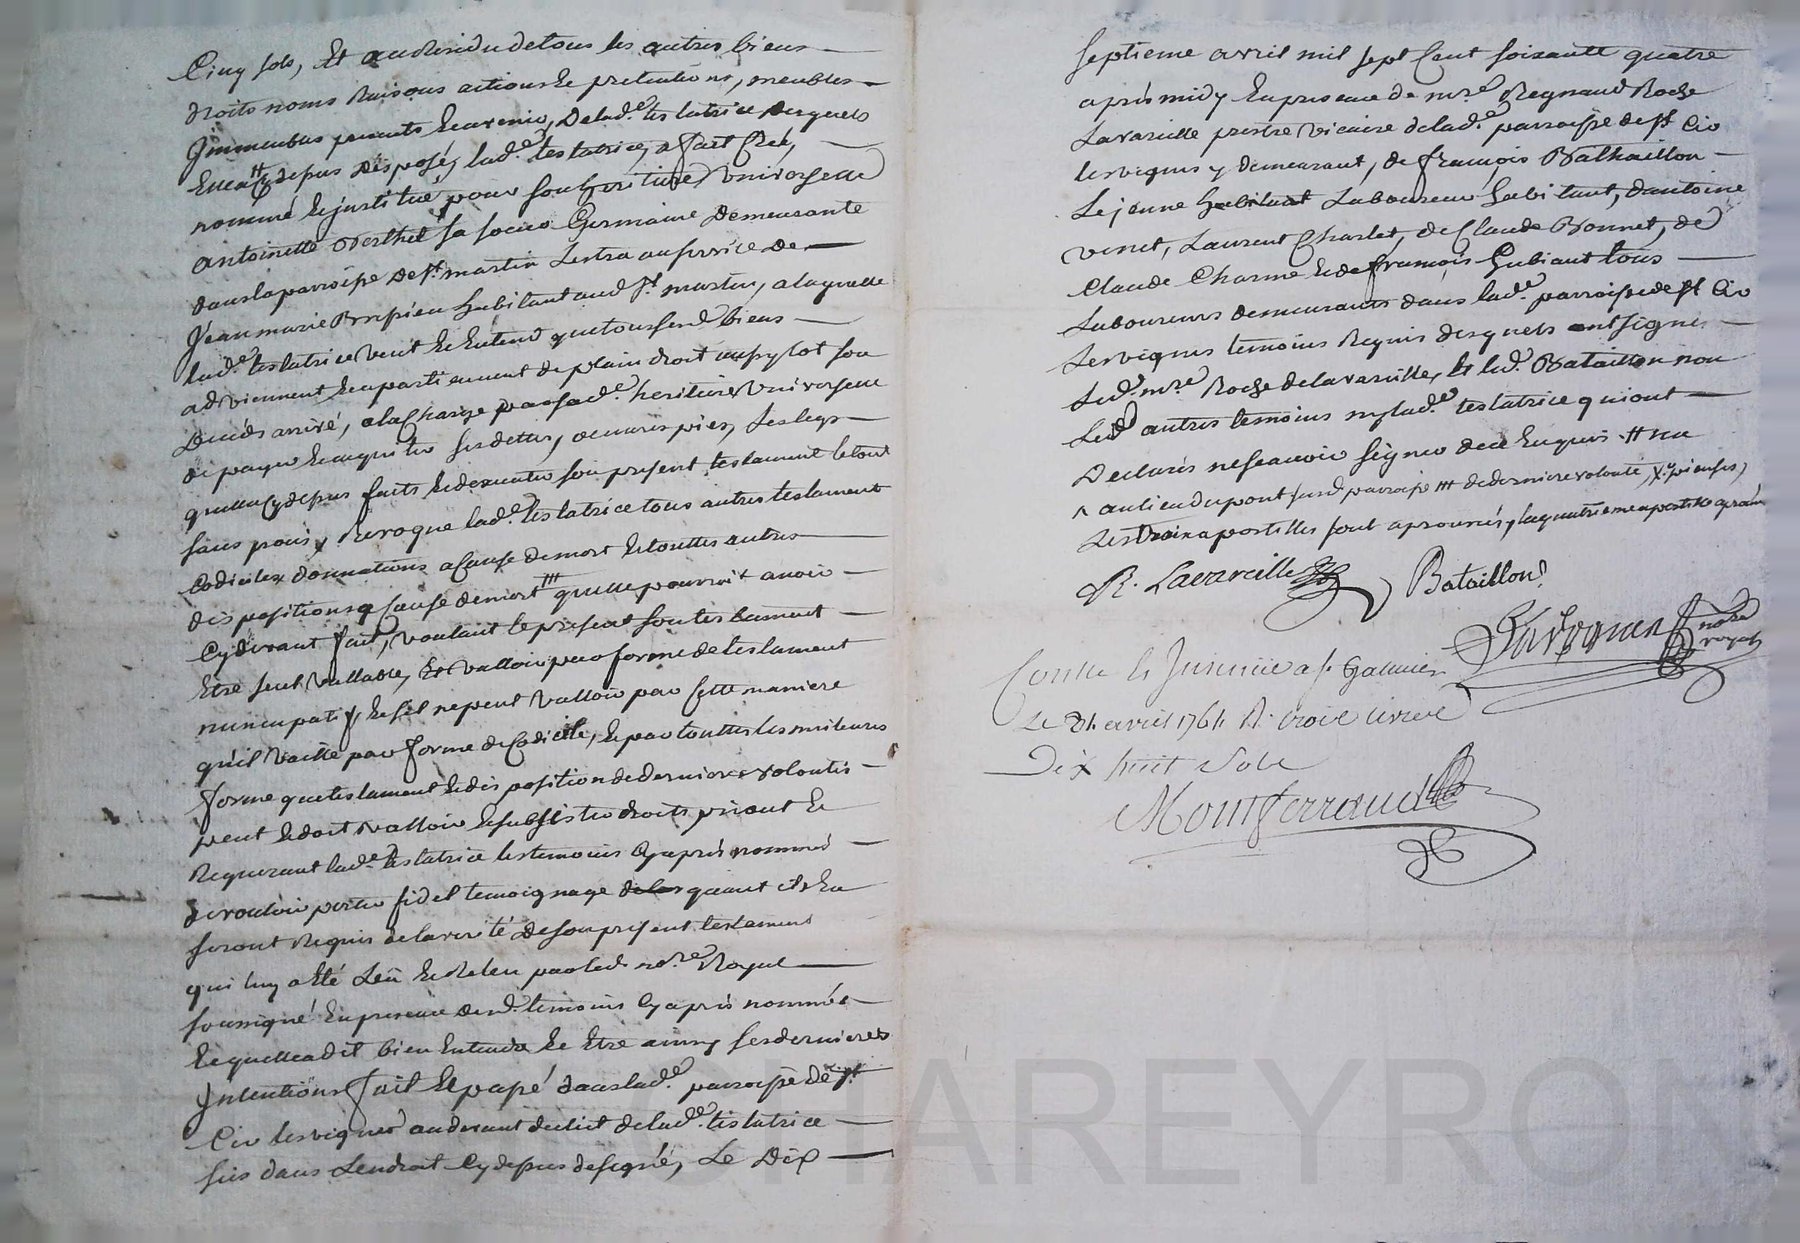 Cinq sols, Et au Residu de tous les autres biens
droits noms Raisons actions & pretentions, meubles
Immeubles presents & avenir, De lad.e testatrice desquels
Elle n'a cy depus disposé, lad.e testatrice, a fait Créé,
nommé & justitué pour son heritiere universelle
antoinette Berthet sa soeur Germaine demeurante
dans la parroisse de st. martin Lestra au service de
Jean marie habitant aud st. martin, a laquelle
lad.e testatrice veut & Entend que tous sesd. biens
adviennent & apartiennent de plain droit sitot son
Deceds arrivé, a la Charge par sad.e heritiere universelle
de payer & acquiter ses dettes, oeuvres pies, Les legs
quelle a Cy depus faits & dexecuter son present testament le tout
sans procis, Revoque lad.e testatrice tous autres testament
Codiciles donnations a Cause de mort & touttes autres
dispositions a Cause de mort ttt quelle pourroit avoir
Cy devant fait, voulant le present son testament
Etre seul vallable, Et valloir par forme de testament
nuncupatif, & sil ne peut valloir par sette maniere
quil vaille par forme de Codicille, & par touttes les meileures
forme que testament & disposition de derniere volontés
peut & doit valloir & subsister de droits priant &
Requerant lad.e testatrice les temoins Cy après nommés
de vouloir porter fidel temoignage quant ils En
seront Requis de la verité de son present testament
qui luy a Eté Leü & Releu par led. no.re Royal
soussigné En presence desd. temoins Cy après nommés
& quelle a dit bien Entendre & Etre ainsy ses dernieres
Intentions fait & passé dans lad.e parroisse de st
Cir les vignes au devant du lit de lad.e testatrice
sis dans Lendroit Cy depus designé, Le Dix
septieme avril mil sept Cent soixante quatre
après midy En presence de m.re Reynaud Roche
Lavareille prestre vicaire de lad.e parroisse de st Cir
les vignes y demeurant, de françois Bathaillon
Le jeune Laboureur habitant, d'antoine
venet, Laurent Charlet, de Claude Bonnet, de
Claude Charme & de françois Gubiant tous
Laboureurs demeurants dans lad.e parroisse de st Cir
Les vignes temoins Requis desquels ont signé
Led. m.re Roche de la vareille, & led. Bataillon non
Les autres temoins ny lad.e testatrice qui ont
Declarés ne scavoir signer de ce Enquis tt na
^ au lieu du pont susd. parroisse ttt de derniere volonté, X pieuses,
Les trois apostilles sont aprouvés, la quatrieme apostille aprouvé
R. Lavareille Bataillon
no.re royal
Contlé & Insinué a st Galmier
Le 21 avril 1764 R. trois livres
Dix huit sols
Montferrand
CHAREYRON